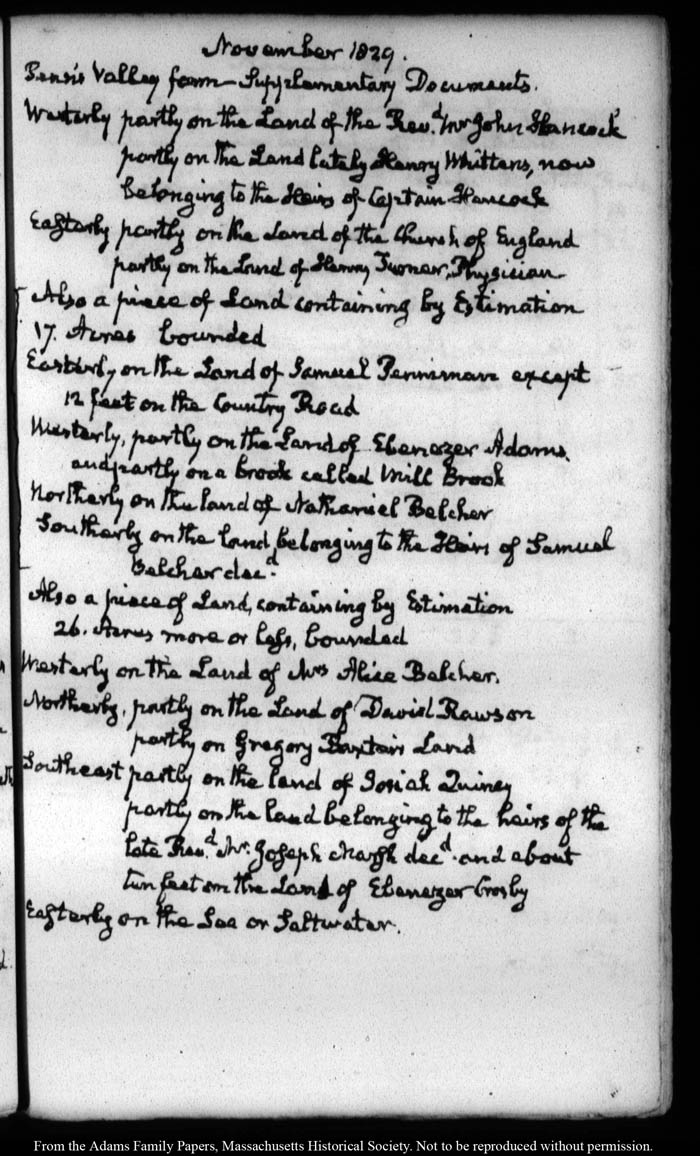 November 1829.
Penn's Valley farm — Supplementary Documents.
Westerly partly on the Land of the Rev.d Mr John Hancock
partly on the Land lately Henry Whittens, now
belonging to the Heirs of Captain Hancock
Easterly partly on the Land of the Church of England
partly on the Land of Henry Turner, Physician
Also a piece of Land containing by Estimation
17. Acres bounded
Easterly on the Land of Samuel Penniman except
12 feet on the Country Road
Westerly, partly on the Land of Ebenezer Adams.
and partly on a brook called Mill Brook
Northerly on the land of Nathaniel Belcher
Southerly on the land belonging to the Heirs of Samuel
Belcher dec.d
Also a piece of Land, containing by Estimation
26. Acres more or less, bounded
Westerly on the Land of Mrs Alice Belcher.
Northerly, partly on the Land of David Rawson
partly on Gregory Baxters Land
Southeast partly on the land of Josiah Quincy
partly on the land belonging to the heirs of the
late Rev.d Mr. Joseph Marsh dec.d and about
ten feet on the Land of Ebenezer Crosby
Easterly on the Sea or Saltwater.
From the Adams Family Papers, Massachusetts Historical Society. Not to be reproduced without permission.